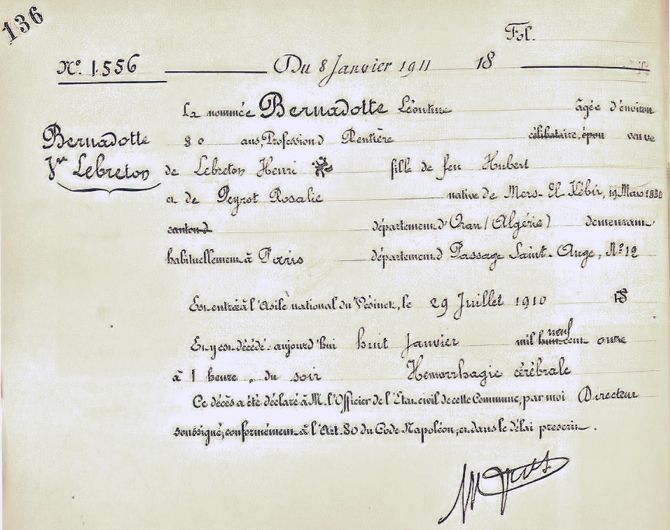 136
Fol.
N° 1.556 Du 8 Janvier 1911 18
La nommée Bernadotte Léontine âgée d'environ
Bernadotte
Vve Lebreton
80 ans, Profession d Rentière célibataire, épou veuve
de Lebreton Henri fille de feu Hubert
et de Peyrot Rosalie native de Mers-El Kébir, 19 Mars 1830
canton d département d'Oran (Algérie) demeurant
habituellement à Paris département d Passage Saint-Ange, N° 12
Est entrée à l'Asile national du Vésinet, le 29 Juillet 1910 18
Et y est décédé aujourd'hui huit Janvier mil huit cent neuf onze
à 1 heure du soir Hemorrhagie cérébrale
Ce décès a été déclaré à M. l'Officier de l'État civil de cette Commune, par moi Directeur
soussigné, conformément à l'Art. 80 du Code Napoléon, et dans le délai prescrit.